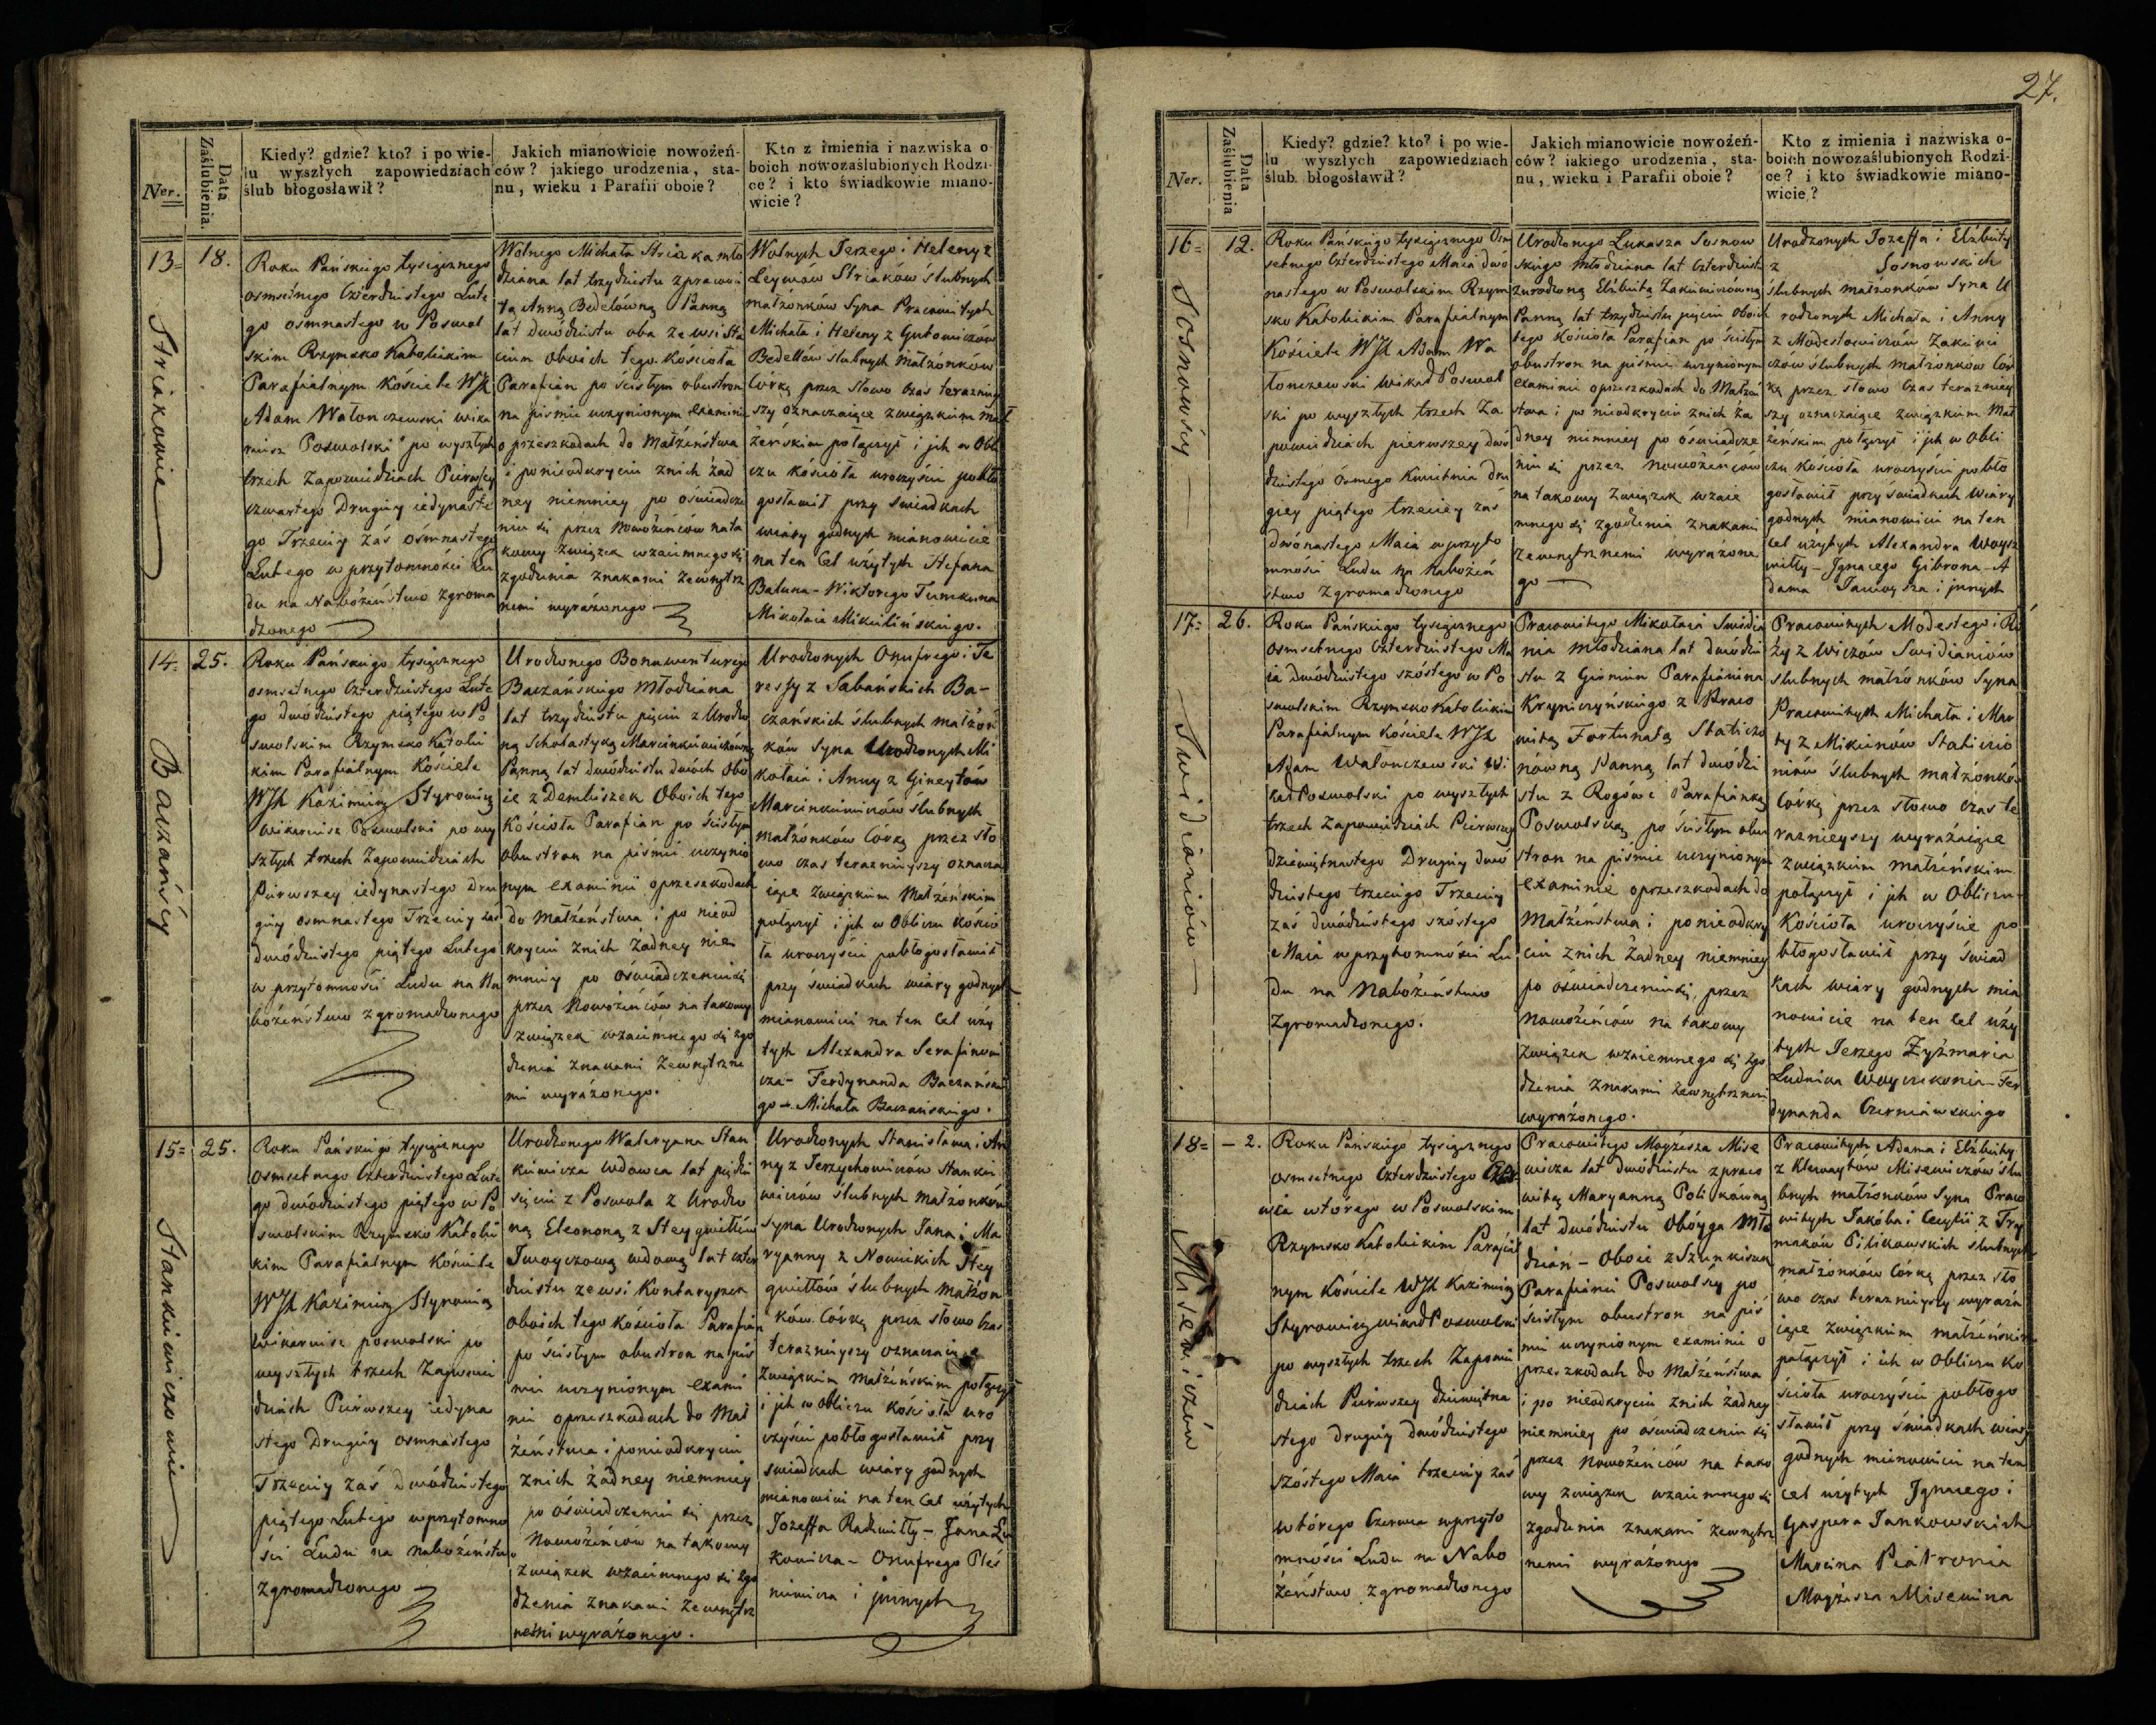 27.
Ner.
Data Zaślubienia.
Kiedy? gdzie? kto? i po wie-
lu wyszłych zapowiedziach
ślub błogosławił?
Jakich mianowicie nowożeń-
ców? jakiego urodzenia, sta-
nu, wieku i Parafii oboie?
Kto z imienia i nazwiska o-
boich nowozaślubionych Rodzi-
ce? i kto świadkowie miano-
wicie?
13=
18.
Striakowie
Roku Pańskiego tysiącznego
osmsetnego Czterdziestego Lute
go osmnastego w Poswol
skim Rzymsko Katolickim
Parafialnym Kościele WJX
Adam Wałonczewski wika
riusz Poswolski po wyszłych
trzech Zapowiedziach Pierwszey
czwartego Drugiey iedynaste
go Trzeciey zaś ósmnastego
Lutego w przytomności Lu
du na Nabożeństwo zgroma
dzonego
Wolnego Michała Striaka mło
dziana lat trzydziestu z pracowi
tą Anną Bedelówną Panną
lat dwódziestu oba ze wsi Sta
oboich tego Kościoła
Parafian po ścisłym obustron
na pismie uczynionym examinie
o przeszkodach do Małżeństwa
i po nieodkryciu znich żad
ney niemniey po oświadcze
niu się przez Nowożeńców na ta
kowy związek wzaiemnego się
zgodzenia znakami zewnętrz
nemi wyrażonego
Wolnych Jerzego i Heleny z
Leymów Striaków ślubnych
małżonków Syna Pracowitych
Michała i Heleny z Gutowiczów
Bedelów ślubnych Małżonków
Córkę przez słowo czas terazniey
szy oznaczaiące związkiem Mał
żeńskim połączył i jch w Obli
czu Kościoła uroczyście pobło
gosławił przy świadkach
wiary godnych mianowicie
na ten Cel użytych Stefana
Baluna - Wiktorego Tumkuna
Mikołaia Mikulińskiego.
14.
25.
Baczańscy
Roku Pańskiego tysiącznego
osmsetnego Czterdziestego Lute
go dwódziestego piątego w Po
swolskim Rzymsko Katolic
kim Parafialnym Kościele
WJX Kazimierz Styrowicz
Wikariusz Poswolski po wy
szłych trzech Zapowiedziach
Pierwszey iedynastego Dru
giey osmnastego Trzeciey zaś
dwódziestego piątego Lutego
w przytomności Ludu na Na
bożeństwo zgromadzonego
Urodzonego Bonawenturego
Baczańskiego Młodziana
lat trzydziestu pięciu z Urodzo
ną Scholastyką Marcinkiewiczówną
Panną lat dwódziestu dwóch obo
ie z Dembiszek Oboich tego
Kościoła Parafian po ścisłym
obustron na piśmie uczynio
nym examinie o przeszkodach
do Małżeństwa i po nieod
kryciu znich żadney nie
mniey po oświadczeniu się
przez Nowożeńców na takowy
związek wzaiemnego się zgo
dzenia znakami zewnętrzne
mi wyrażonego.
Urodzonych Onufrego i Te
ressy z Sabańskich Ba-
czańskich ślubnych małżon
ków Syna Urodzonych Mi
kołaia i Anny z Gineytów
Marcinkiewiczów ślubnych
małżonków Córkę przez sło
wo czas terazniyszy oznacza
iące związkiem Małżeńskim
połączył i jch w Obliczu Kościo
ła uroczyście pobłogosławił
przy świadkach wiary godnych
mianowicie na ten Cel uży
tych Alexandra Serafinowi
cza - Ferdynanda Baczańskie
go - Michała Baczańskiego.
15=
25.
Stankiewiczowie
Roku Pańskiego tysiącznego
osmsetnego Czterdziestego Lute
go dwódziestego piątego w Po
swolskim Rzymsko Katolic
kim Parafialnym Kościele
WJX Kazimierz Styrowicz
Wikariusz poswolski po
wyszłych trzech Zapowie
dziach Pierwszey iedyna
stego Drugiey osmnastego
Trzeciey zaś dwódziestego
piątego Lutego w przytomno
ści Ludu na nabożeństwo
zgromadzonego
Urodzonego Waleryana Stan
kiewicza wdowca lat pięćdzie
sięciu z Poswola z Urodzo
ną Eleonorą z Steygwiłłów
Iwoyczową wdową lat czter
dziestu ze wsi Kontaryszek
oboich tego Kościoła Parafian
po ścisłym obustron na piś
mie uczynionym exami
nie o przeszkodach do Mał
żeństwa i po nieodkryciu
znich żadney niemniey
po oświadczeniu się przez
Nowożeńców na takowy
związek wzaiemnego się zgo
dzenia znakami zewnętrz
nemi wyrażonego.
Urodzonych Stanisława i An
ny z Jerzychowiczów Stankie
wiczów ślubnych Małżonków
Syna Urodzonych Jana i Ma
ryanny z Nowickich Stey
gwiłłów ślubnych Małżon
ków Córkę przez słowo Czas
terazniyszy oznaczaiące
Związkiem Małżeńskim połączył
i jch w obliczu Kościoła uro
czyście pobłogosławił przy
świadkach wiary godnych
mianowicie na ten Cel użytych
Jozeffa Radziwiłły - Jana Lu
kowicza - Onufrego Pleś
niewicza i jnnych
Ner.
Data Zaślubienia
Kiedy? gdzie? kto? i po wie-
lu wyszłych zapowiedziach
ślub. błogosławił?
Jakich mianowicie nowożeń-
ców? iakiego urodzenia, sta-
nu, wieku i Parafii oboie?
Kto z imienia i nazwiska o-
boich nowozaślubionych Rodzi-
ce? i kto świadkowie miano-
wicie?
16=
12.
Sosnowscy
Roku Pańskiego tysiącznego Osm
setnego Czterdziestego Maia dwó
nastego w Poswolskim Rzym
sko Katolickim Parafialnym
Kościele WJX Adam Wa
łonczewski Wikary Poswol
ski po wyszłych trzech Za
powiedziach pierwszey dwó
dziestego ósmego Kwietnia dru
giey piątego trzeciey zaś
dwónastego Maia w przyto
mności Ludu na Nabożeń
stwo zgromadzonego
Urodzonego Lukasza Sosnow
skiego Młodziana lat Czterdziestu
z urodzoną Elżbietą Zakiewiczówną
Panną lat trzydziestu pięciu Oboich
tego Kościoła Parafian po ścisłym
obustron na piśmie uczynionym
examinie o przeszkodach do Małżeń
stwa i po nieodkryciu znich ża
dney niemniey po oświadcze
niu się przez Nowożeńców
na takowy Związek wzaie
mnego się zgodzenia znakami
zewnętrznemi wyrażone
go
Urodzonych Jozeffa i Elżbiety
z Sosnowskich
ślubnych małżonków Syna U
rodzonych Michała i Anny
z Modestowiczów Zakiewi
czów ślubnych małżonków Cór
kę przez słowo Czas terazniey
szy oznaczaiące związkiem Mał
żeńskim połączył i jch w obli
czu Kościoła uroczyście pobło
gosławił przy świadkach wiary
godnych mianowicie na ten
cel użytych Alexandra Woysz
wiłły - Jgnacego Gibrona - A
dama Jawoysza i jnnych
17=
26.
Swidianiów
Roku Pańskiego tysiącznego
osmsetnego Czterdziestego Ma
ia dwódziestego szóstego w Po
swolskim Rzymsko Katolickim
Parafialnym Kościele WJX
Adam Wałonczewski Wi
kary Poswolski po wyszłych
trzech Zapowiedziach Pierwszey
dziewiętnastego Drugiey dwó
dziestego trzeciego Trzeciey
zaś dwódziestego szóstego
Maia w przytomności Lu
du na Nabożeństwo
zgromadzonego.
Pracowitego Mikołaia Swidia
nia Młodziana lat dwódzie
stu z Girniun Parafianina
Kryniczyńskiego z Praco
witą Fortunatą Staticzo
nowną Panną lat dwódzie
stu z Rogówe Parafianką
Poswolską po ścisłym obu
stron na piśmie uczynionym
examinie o przeszkodach do
Małżeństwa i po nieodkry
ciu znich żadney niemniey
po oświadczeniu się przez
Nowożeńców na takowy
Związek wzaiemnego się zgo
dzenia znakami zewnętrznemi
wyrażonego.
Pracowitych Modestego i Ró
ży z Wiczów Swidianiów
ślubnych małżonków Syna
Pracowitych Michała i Mar
ty z Mikienów Staticzio
niów ślubnych małżonków
Córkę przez słowo czas te
raznieyszy wyrażaiące
związkiem małżeńskim
połączył i jch w Obliczu
Kościoła uroczyście po
błogosławił przy świad
kach wiary godnych mia
nowicie na ten cel uży
tych Jerzego Zyżmaria
Ludwika Woyczekonia - Fer
dynanda Czerniawskiego
18=
- 2.
Misewiczów
Roku Pańskiego tysiącznego
osmsetnego Czterdziestego Czer
wca wtórego w Poswolskim
Rzymsko Katolickim Parafial
nym Kościele WJX Kazimierz
Styrowicz wikary Poswolski
po wyszłych trzech Zapowie
dziach Pierwszey dziewiętna
stego drugiey dwódziestego
szóstego Maia trzeciey zaś
wtórego Czerwca w przyto
mności Ludu na Nabo
żeństwo zgromadzonego
Pracowitego Moyżesza Mise
wicza lat dwódziestu z praco
witą Maryanną Polikówną
lat dwódziestu Obóyga Mło
dzian - Oboie z Szunkiszek
Parafianie Poswolscy po
ścisłym obustron na piś
mie uczynionym examinie o
przeszkodach do Małżeństwa
i po nieodkryciu znich żadney
niemniey po oświadczeniu się
przez Nowożeńców na tako
wy związek wzaiemnego się
zgodzenia znakami zewnętrz
nemi wyrażonego
Pracowitych Adama i Elżbiety
z Klewaytów Misewiczów ślu
bnych małżonków Syna Praco
witych Jakóba i Cecylii z Try
maków Pilikowskich ślubnych
małżonków Córkę przez sło
wo czas terazniyszy wyraża
iące związkiem małżeńskim
połączył i ich w Obliczu Ko
ścioła uroczyście pobłogo
sławił przy świadkach wiary
godnych mianowicie na ten
cel użytych Jgnacego i
Gaspera Jankowskich
Marcina Piatronia
Moyżesza Misewicza